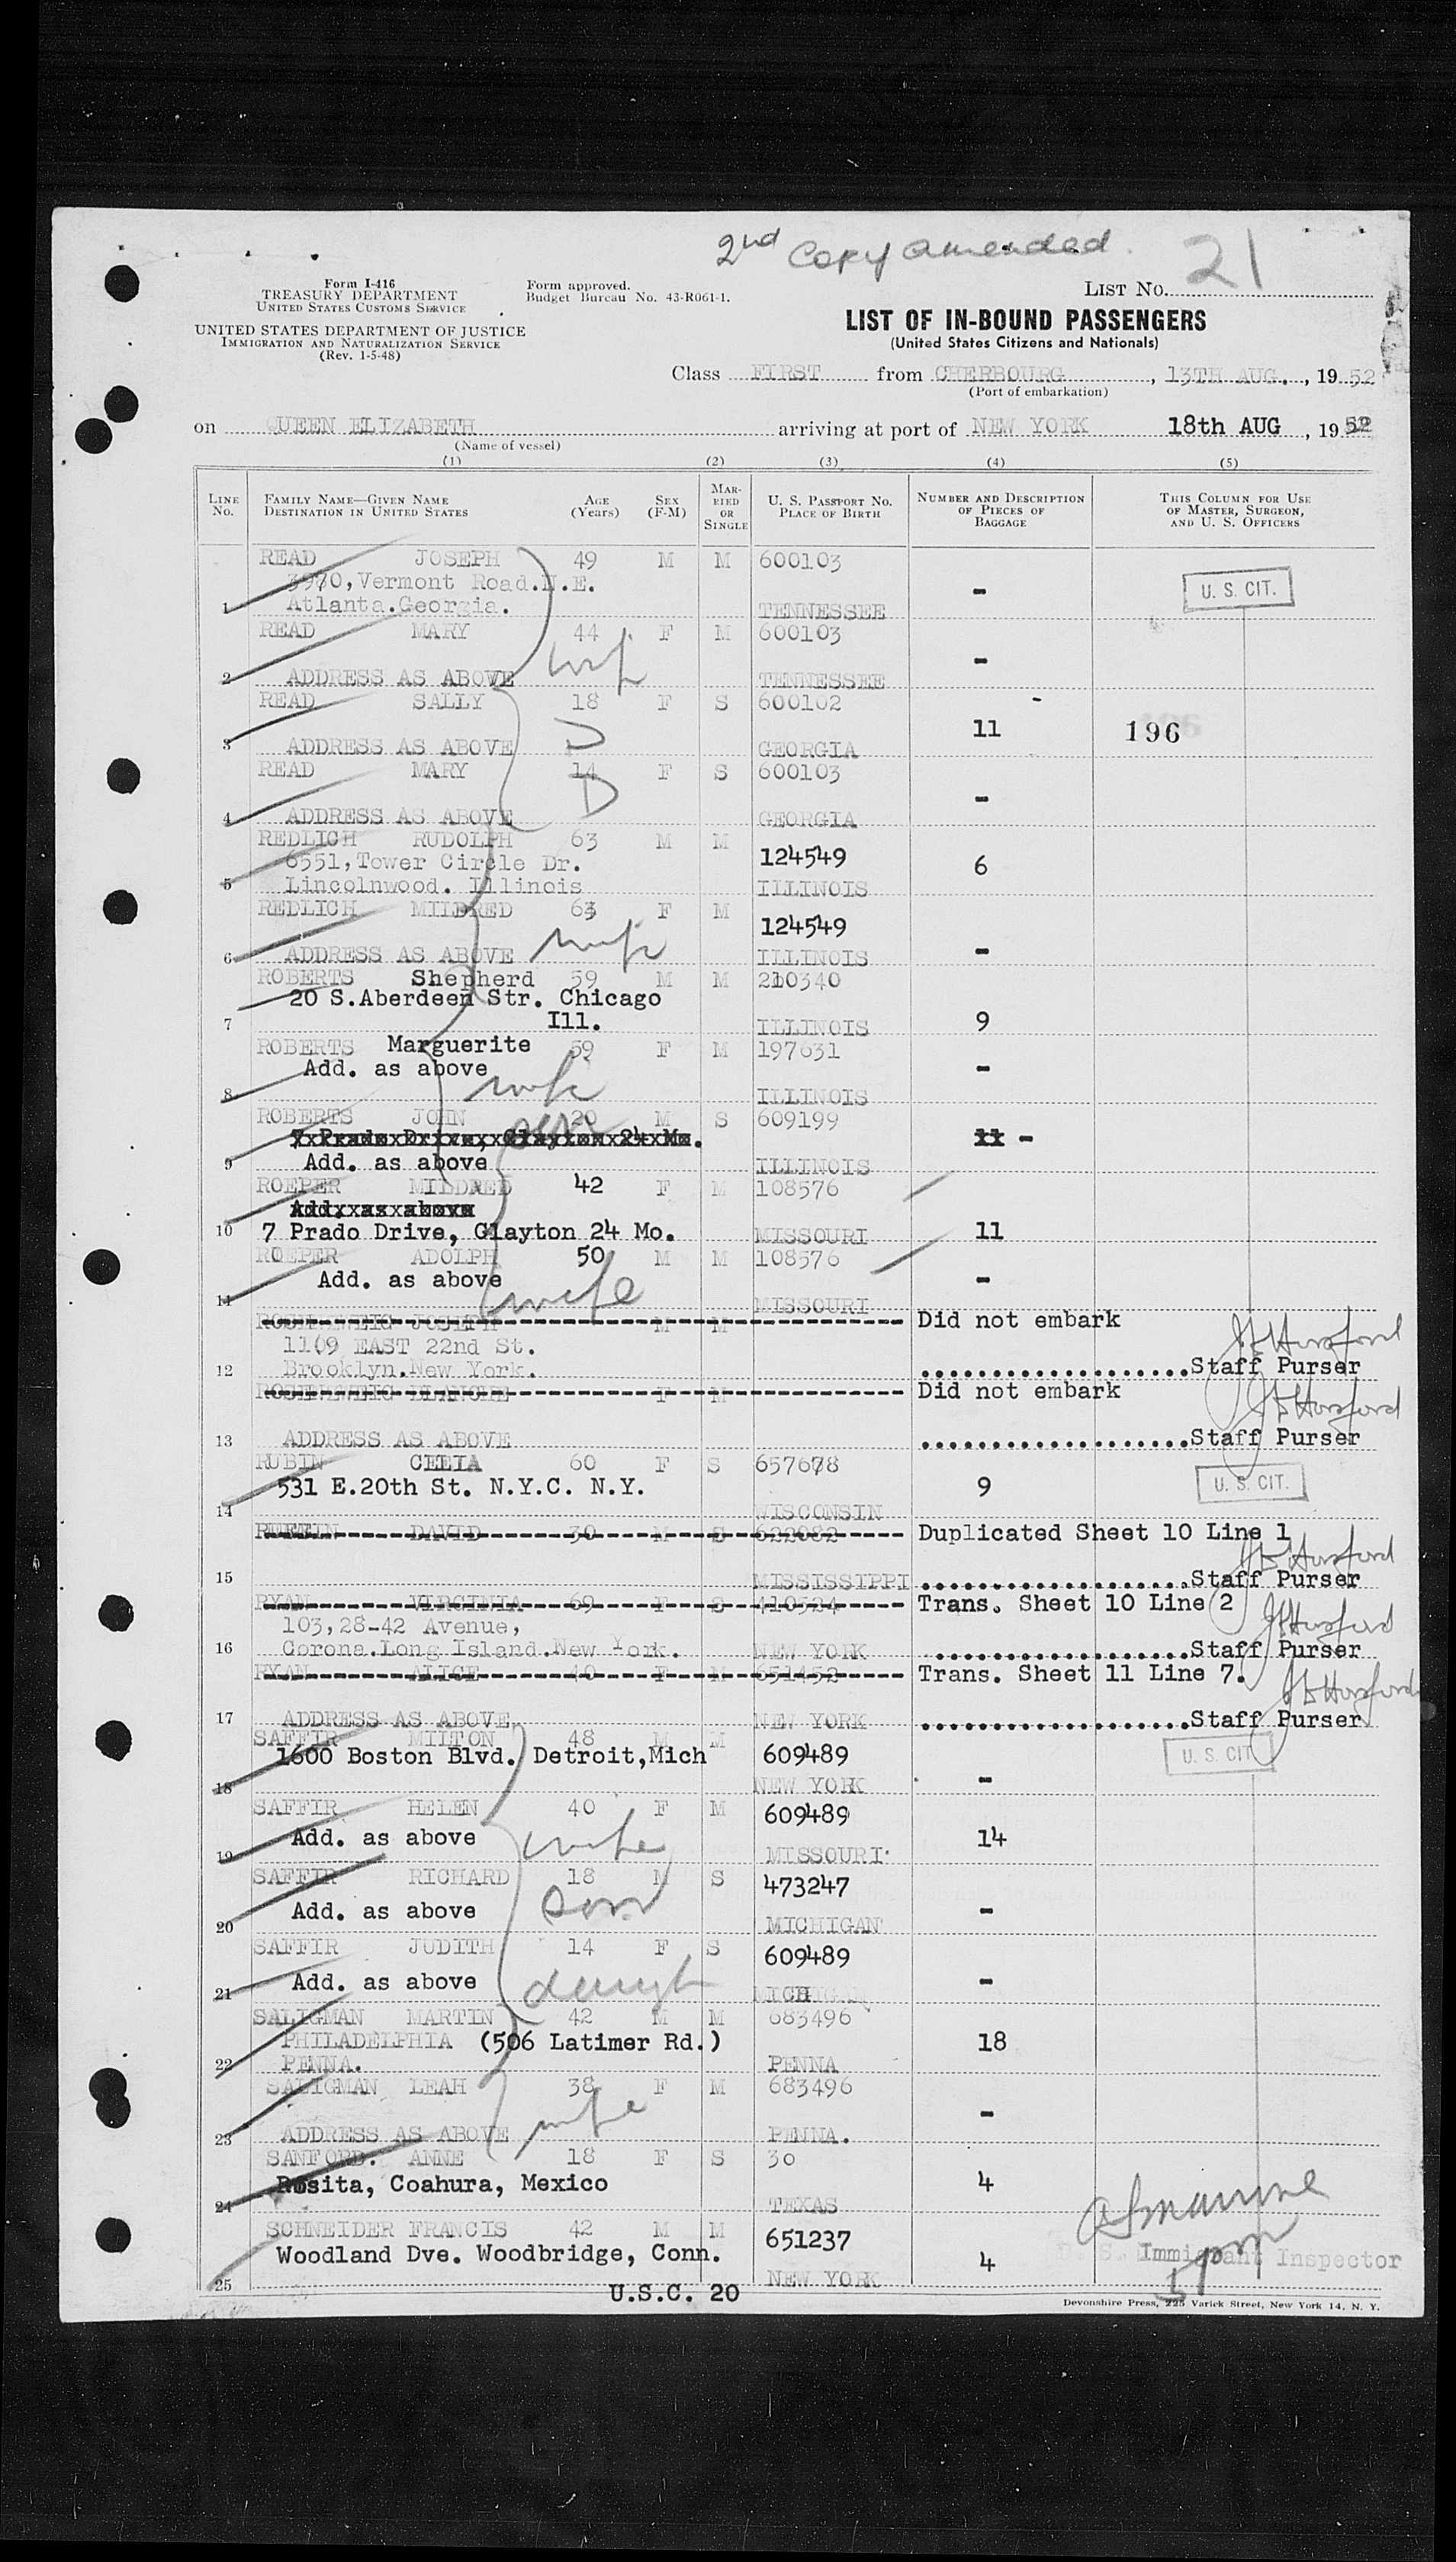 2nd Copy amended.
21
Form I-416
TREASURY DEPARTMENT
UNITED STATES CUSTOMS SERVICE
UNITED STATES DEPARTMENT OF JUSTICE
IMMIGRATION AND NATURALIZATION SERVICE
(Rev. 1-5-48)
Form approved.
Budget Bureau No. 43-R061-1.
LIST NO.
LIST OF IN-BOUND PASSENGERS
(United States Citizens and Nationals)
Class FIRST from CHERBOURG, 13TH AUG., 1952
(Port of embarkation)
on QUEEN ELIZABETH arriving at port of NEW YORK 18th AUG, 1952
(Name of vessel)
(1) (2) (3) (4) (5)
LINE NO. FAMILY NAME—GIVEN NAME DESTINATION IN UNITED STATES AGE (Years) SEX (F-M) MARRIED OR SINGLE U. S. PASSPORT NO. PLACE OF BIRTH NUMBER AND DESCRIPTION OF PIECES OF BAGGAGE THIS COLUMN FOR USE OF MASTER, SURGEON, AND U. S. OFFICERS
READ JOSEPH 49 M M 600103
3970,Vermont Road.N.E. - U. S. CIT.
1 Atlanta.Georgia. TENNESSEE
READ MARY 44 F M 600103
wife -
2 ADDRESS AS ABOVE TENNESSEE
READ SALLY 18 F S 600102 -
D 11 196
3 ADDRESS AS ABOVE GEORGIA
READ MARY 14 F S 600103
D -
4 ADDRESS AS ABOVE GEORGIA
REDLICH RUDOLPH 63 M M 124549
6551,Tower Circle Dr. 6
5 Lincolnwood. Illinois ILLINOIS
REDLICH MILDRED 63 F M 124549
wife -
6 ADDRESS AS ABOVE ILLINOIS
ROBERTS Shepherd 59 M M 210340
20 S.Aberdeen Str. Chicago
7 Ill. ILLINOIS 9
ROBERTS Marguerite 59 F M 197631
Add. as above -
8 wife ILLINOIS
ROBERTS JOHN 20 M S 609199
son
7 Prado Drive, Clayton 24 Mo. 11 -
9 Add. as above ILLINOIS
ROEPER MILDRED 42 F M 108576
Add. as above
10 7 Prado Drive, Clayton 24 Mo. MISSOURI 11
ROEPER ADOLPH 50 M M 108576
Add. as above -
11 wife MISSOURI
JOSEPH M M Did not embark
1109 EAST 22nd St.
12 Brooklyn.New York. Staff Purser
BLANCHE F M Did not embark
13 ADDRESS AS ABOVE Staff Purser
RUBIN CELIA 60 F S 657678
531 E.20th St. N.Y.C. N.Y. 9 U. S. CIT.
14 WISCONSIN
DAVID 30 M S 622082 Duplicated Sheet 10 Line 1
15 MISSISSIPPI Staff Purser
RYAN VIRGINIA 69 F S 410524 Trans. Sheet 10 Line 2
103,28-42 Avenue,
16 Corona.Long Island.New York. NEW YORK Staff Purser
RYAN ALICE 40 F M 651452 Trans. Sheet 11 Line 7.
17 ADDRESS AS ABOVE NEW YORK Staff Purser
SAFFIR MILTON 48 M M 609489 U. S. CIT.
1600 Boston Blvd. Detroit,Mich -
18 NEW YORK
SAFFIR HELEN 40 F M 609489
19 Add. as above wife MISSOURI 14
SAFFIR RICHARD 18 M S 473247
20 Add. as above son MICHIGAN -
SAFFIR JUDITH 14 F S 609489
21 Add. as above daugh MICHIGAN -
SALIGMAN MARTIN 42 M M 683496
PHILADELPHIA (506 Latimer Rd.) 18
22 PENNA. PENNA
SALIGMAN LEAH 38 F M 683496
wife -
23 ADDRESS AS ABOVE PENNA.
SANFORD. ANNE 18 F S 30
Rosita, Coahura, Mexico 4
24 TEXAS
SCHNEIDER FRANCIS 42 M M 651237
Woodland Dve. Woodbridge, Conn. 4 Immigrant Inspector
25 NEW YORK
U.S.C. 20
Devonshire Press, 225 Varick Street, New York 14, N. Y.